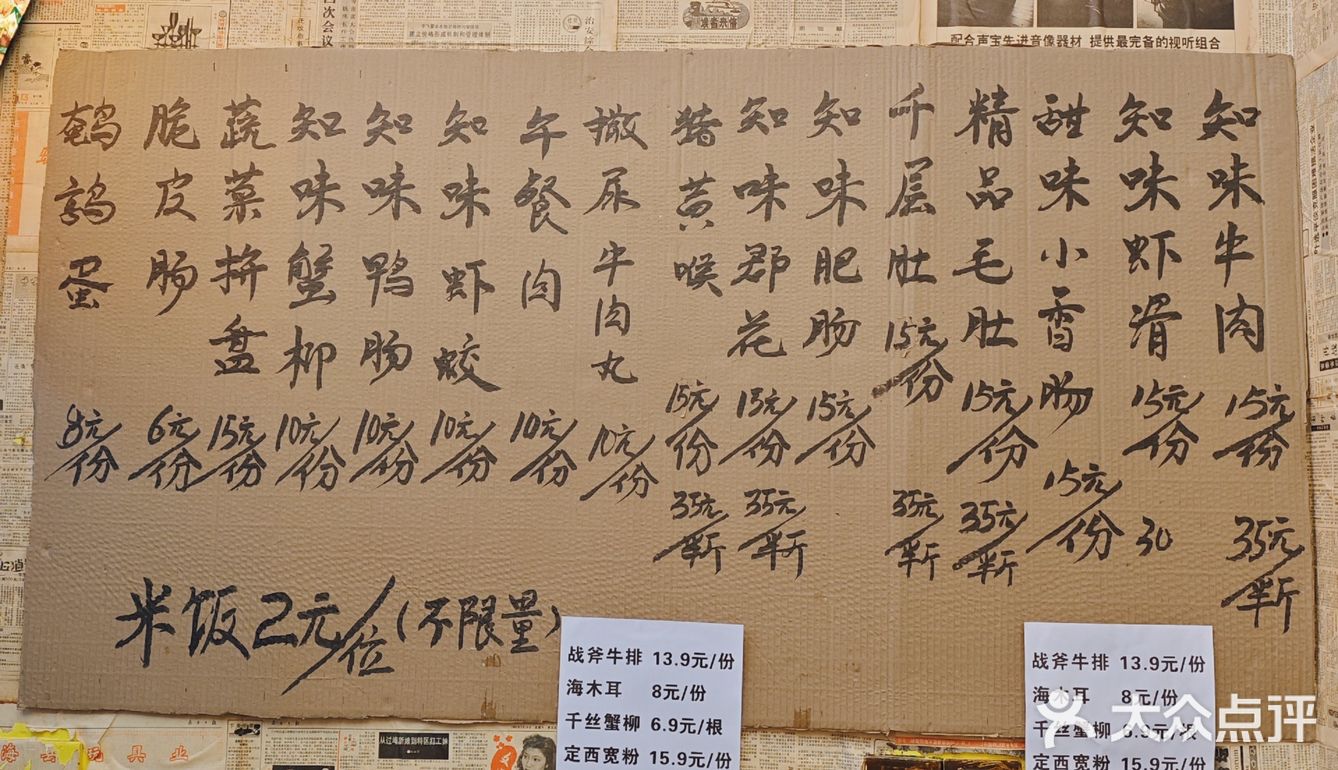 配合声宝先进音像器材 提供最完备的视听组合
鹌鹑蛋 8元/份
脆皮肠 6元/份
蔬菜拼盘 15元/份
知味蟹柳 10元/份
知味鸭肠 10元/份
知味虾蛟 10元/份
午餐肉 10元/份
撒尿牛肉丸 10元/份
猪黄喉 15元/份 35元/半斤
知味郡花 15元/份 35元/半斤
知味肥肠 15元/份
千层肚 15元/份 35元/半斤
精品毛肚 15元/份 35元/半斤
甜味小香肠 15元/份
知味虾滑 15元/份 30
知味牛肉 15元/份 35元/半斤
米饭2元/位(不限量)
战斧牛排 13.9元/份
海木耳 8元/份
千丝蟹柳 6.9元/根
定西宽粉 15.9元/份
战斧牛排 13.9元/份
海木耳 8元/份
千丝蟹柳 6.9元/根
定西宽粉 15.9元/份
大众点评